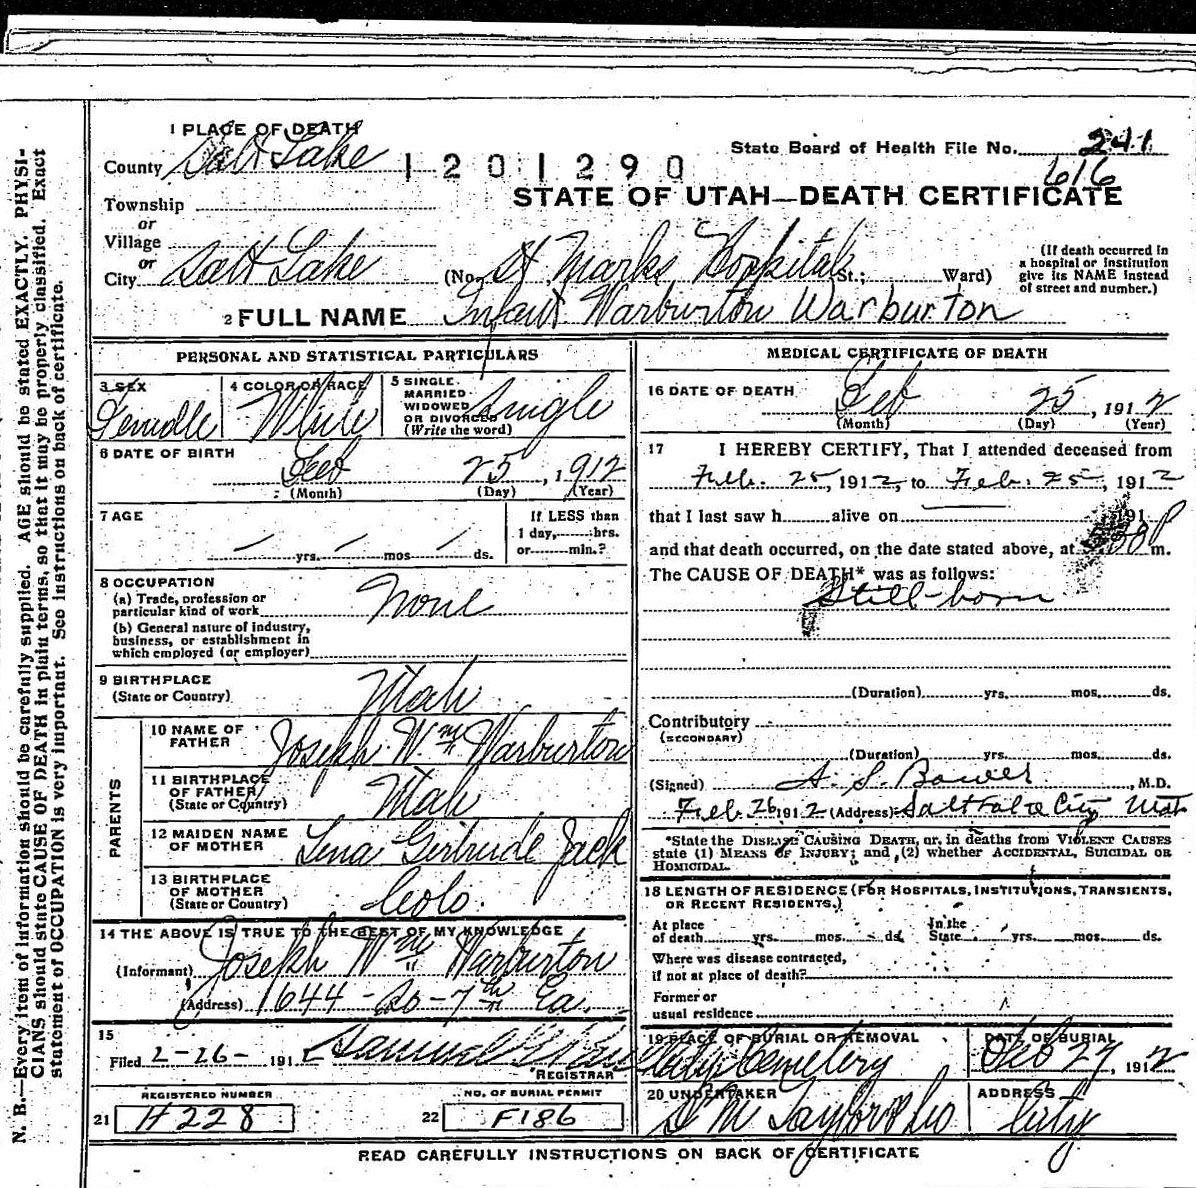 1 PLACE OF DEATH
County Salt Lake 1201290
State Board of Health File No. 241
616
STATE OF UTAH—DEATH CERTIFICATE
Township
or
Village
or
City Salt Lake (No. St Marks Hospital St.; Ward)
(If death occurred in a hospital or institution give its NAME instead of street and number.)
2 FULL NAME Infant Warburton Warburton
PERSONAL AND STATISTICAL PARTICULARS
3 SEX Female
4 COLOR OR RACE White
5 SINGLE, MARRIED, WIDOWED OR DIVORCED (Write the word) Single
6 DATE OF BIRTH Feb 25, 1912
(Month) (Day) (Year)
7 AGE
yrs. mos. ds.
If LESS than
1 day, hrs.
or min.?
8 OCCUPATION
(a) Trade, profession or
particular kind of work None
(b) General nature of industry,
business, or establishment in
which employed (or employer)
9 BIRTHPLACE
(State or Country) Utah
PARENTS
10 NAME OF FATHER Joseph Wm Warburton
11 BIRTHPLACE OF FATHER (State or Country) Utah
12 MAIDEN NAME OF MOTHER Lena Gertrude Jack
13 BIRTHPLACE OF MOTHER (State or Country) Colo.
14 THE ABOVE IS TRUE TO THE BEST OF MY KNOWLEDGE
(Informant) Joseph Wm Warburton
(Address) 1644 - So - 7th Ea.
15
Filed 2-26- 1912 Samuel
REGISTRAR
REGISTERED NUMBER
21 H228
NO. OF BURIAL PERMIT
22 F186
MEDICAL CERTIFICATE OF DEATH
16 DATE OF DEATH Feb 25, 1912
(Month) (Day) (Year)
17 I HEREBY CERTIFY, That I attended deceased from
Feb. 25, 1912, to Feb. 25, 1912
that I last saw h alive on 191
and that death occurred, on the date stated above, at P m.
The CAUSE OF DEATH* was as follows:
Still-born
(Duration) yrs. mos. ds.
Contributory
(SECONDARY)
(Duration) yrs. mos. ds.
(Signed) A. S. Bower, M.D.
Feb. 26 1912 (Address) Salt Lake City Utah
*State the DISEASE CAUSING DEATH, or, in deaths from VIOLENT CAUSES
state (1) MEANS OF INJURY; and (2) whether ACCIDENTAL, SUICIDAL OR
HOMICIDAL.
18 LENGTH OF RESIDENCE (FOR HOSPITALS, INSTITUTIONS, TRANSIENTS,
OR RECENT RESIDENTS.)
At place In the
of death yrs. mos. ds. State yrs. mos. ds.
Where was disease contracted,
if not at place of death?
Former or
usual residence
19 PLACE OF BURIAL OR REMOVAL City Cemetery
DATE OF BURIAL Feb 27, 1912
20 UNDERTAKER S M Taylor & Co
ADDRESS City
READ CAREFULLY INSTRUCTIONS ON BACK OF CERTIFICATE
N. B.—Every item of information should be carefully supplied. AGE should be stated EXACTLY. PHYSI-
CIANS should state CAUSE OF DEATH in plain terms, so that it may be properly classified. Exact
statement of OCCUPATION is very important. See instructions on back of certificate.